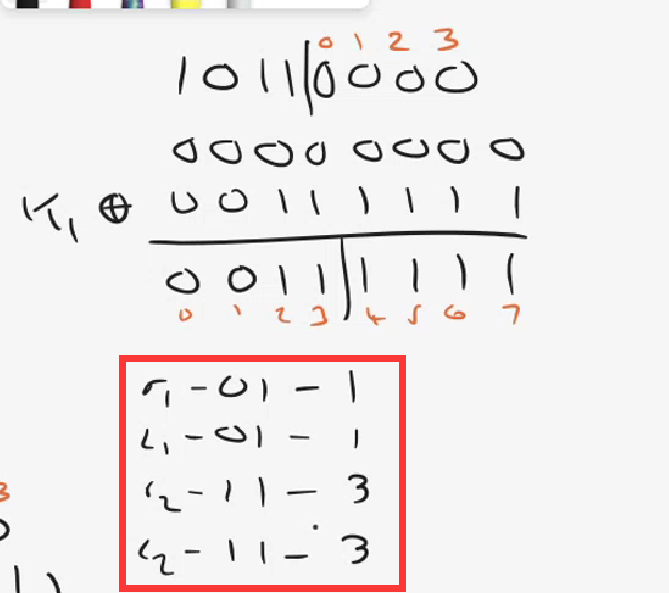 0 1 2 3
1 0 1 1 | 0 0 0 0
0 0 0 0 0 0 0 0
K₁ ⊕ 0 0 1 1 1 1 1 1
0 0 1 1 | 1 1 1 1
0 1 2 3 4 5 6 7
r₁ - 01 - 1
c₁ - 01 - 1
r₂ - 11 - 3
c₂ - 11 - 3
3